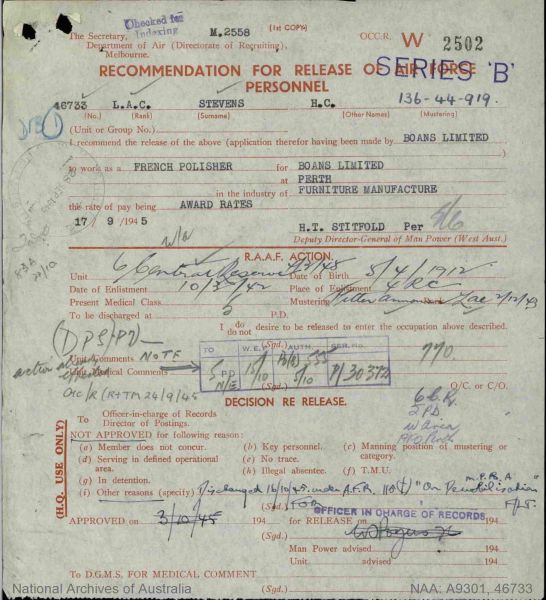 Checked for
Indexing
The Secretary, M.2558 (1st COPY) OCC.R. W 2502
Department of Air (Directorate of Recruiting),
Melbourne.
RECOMMENDATION FOR RELEASE OF AIR FORCE
PERSONNEL
SERIES 'B'
46733 L.A.C. STEVENS H.C. 136-44-919.
(No.) (Rank) (Surname) (Other Names) (Mustering)
(Unit or Group No.)
I recommend the release of the above (application therefor having been made by BOANS LIMITED
)
to work as a FRENCH POLISHER for BOANS LIMITED
at PERTH
in the industry of FURNITURE MANUFACTURE
the rate of pay being AWARD RATES
17/9/1945
w/a
H.T. STITFOLD Per
Deputy Director-General of Man Power (West Aust.)
R.A.A.F. ACTION.
Unit 6 Central Reserve Date of Birth 5/4/1912
Date of Enlistment 10/3/42 Place of Enlistment 4RC
Present Medical Class Mustering Fitter Lac 2/12/43
To be discharged at P.D.
I do / do not desire to be released to enter the occupation above described.
(Sgd.)
TO W.E.F. AUTH. SER. NO.
5PP N/E 15/10 P/30372
Unit Comments NOTE
Unit Medical Comments
(Sgd.) O/C. or C/O.
24/9/45
DECISION RE RELEASE.
(H.Q. USE ONLY)
To Officer-in-charge of Records
Director of Postings.
NOT APPROVED for following reason:
(a) Member does not concur.
(b) Key personnel.
(c) Manning position of mustering or category.
(d) Serving in defined operational area.
(e) No trace.
(f) T.M.U.
(g) In detention.
(h) Illegal absentee.
(i) Other reasons (specify) Discharged 16/10/45 under A.F.R. 115(t) "On Demobilisation"
(Sgd.) FOR
OFFICER IN CHARGE OF RECORDS
APPROVED on 3/10/45 194 for RELEASE on 194
(Sgd.)
Man Power advised 194
Unit advised 194
To D.G.M.S. FOR MEDICAL COMMENT
(Sgd.) 194
National Archives of Australia NAA: A9301, 46733